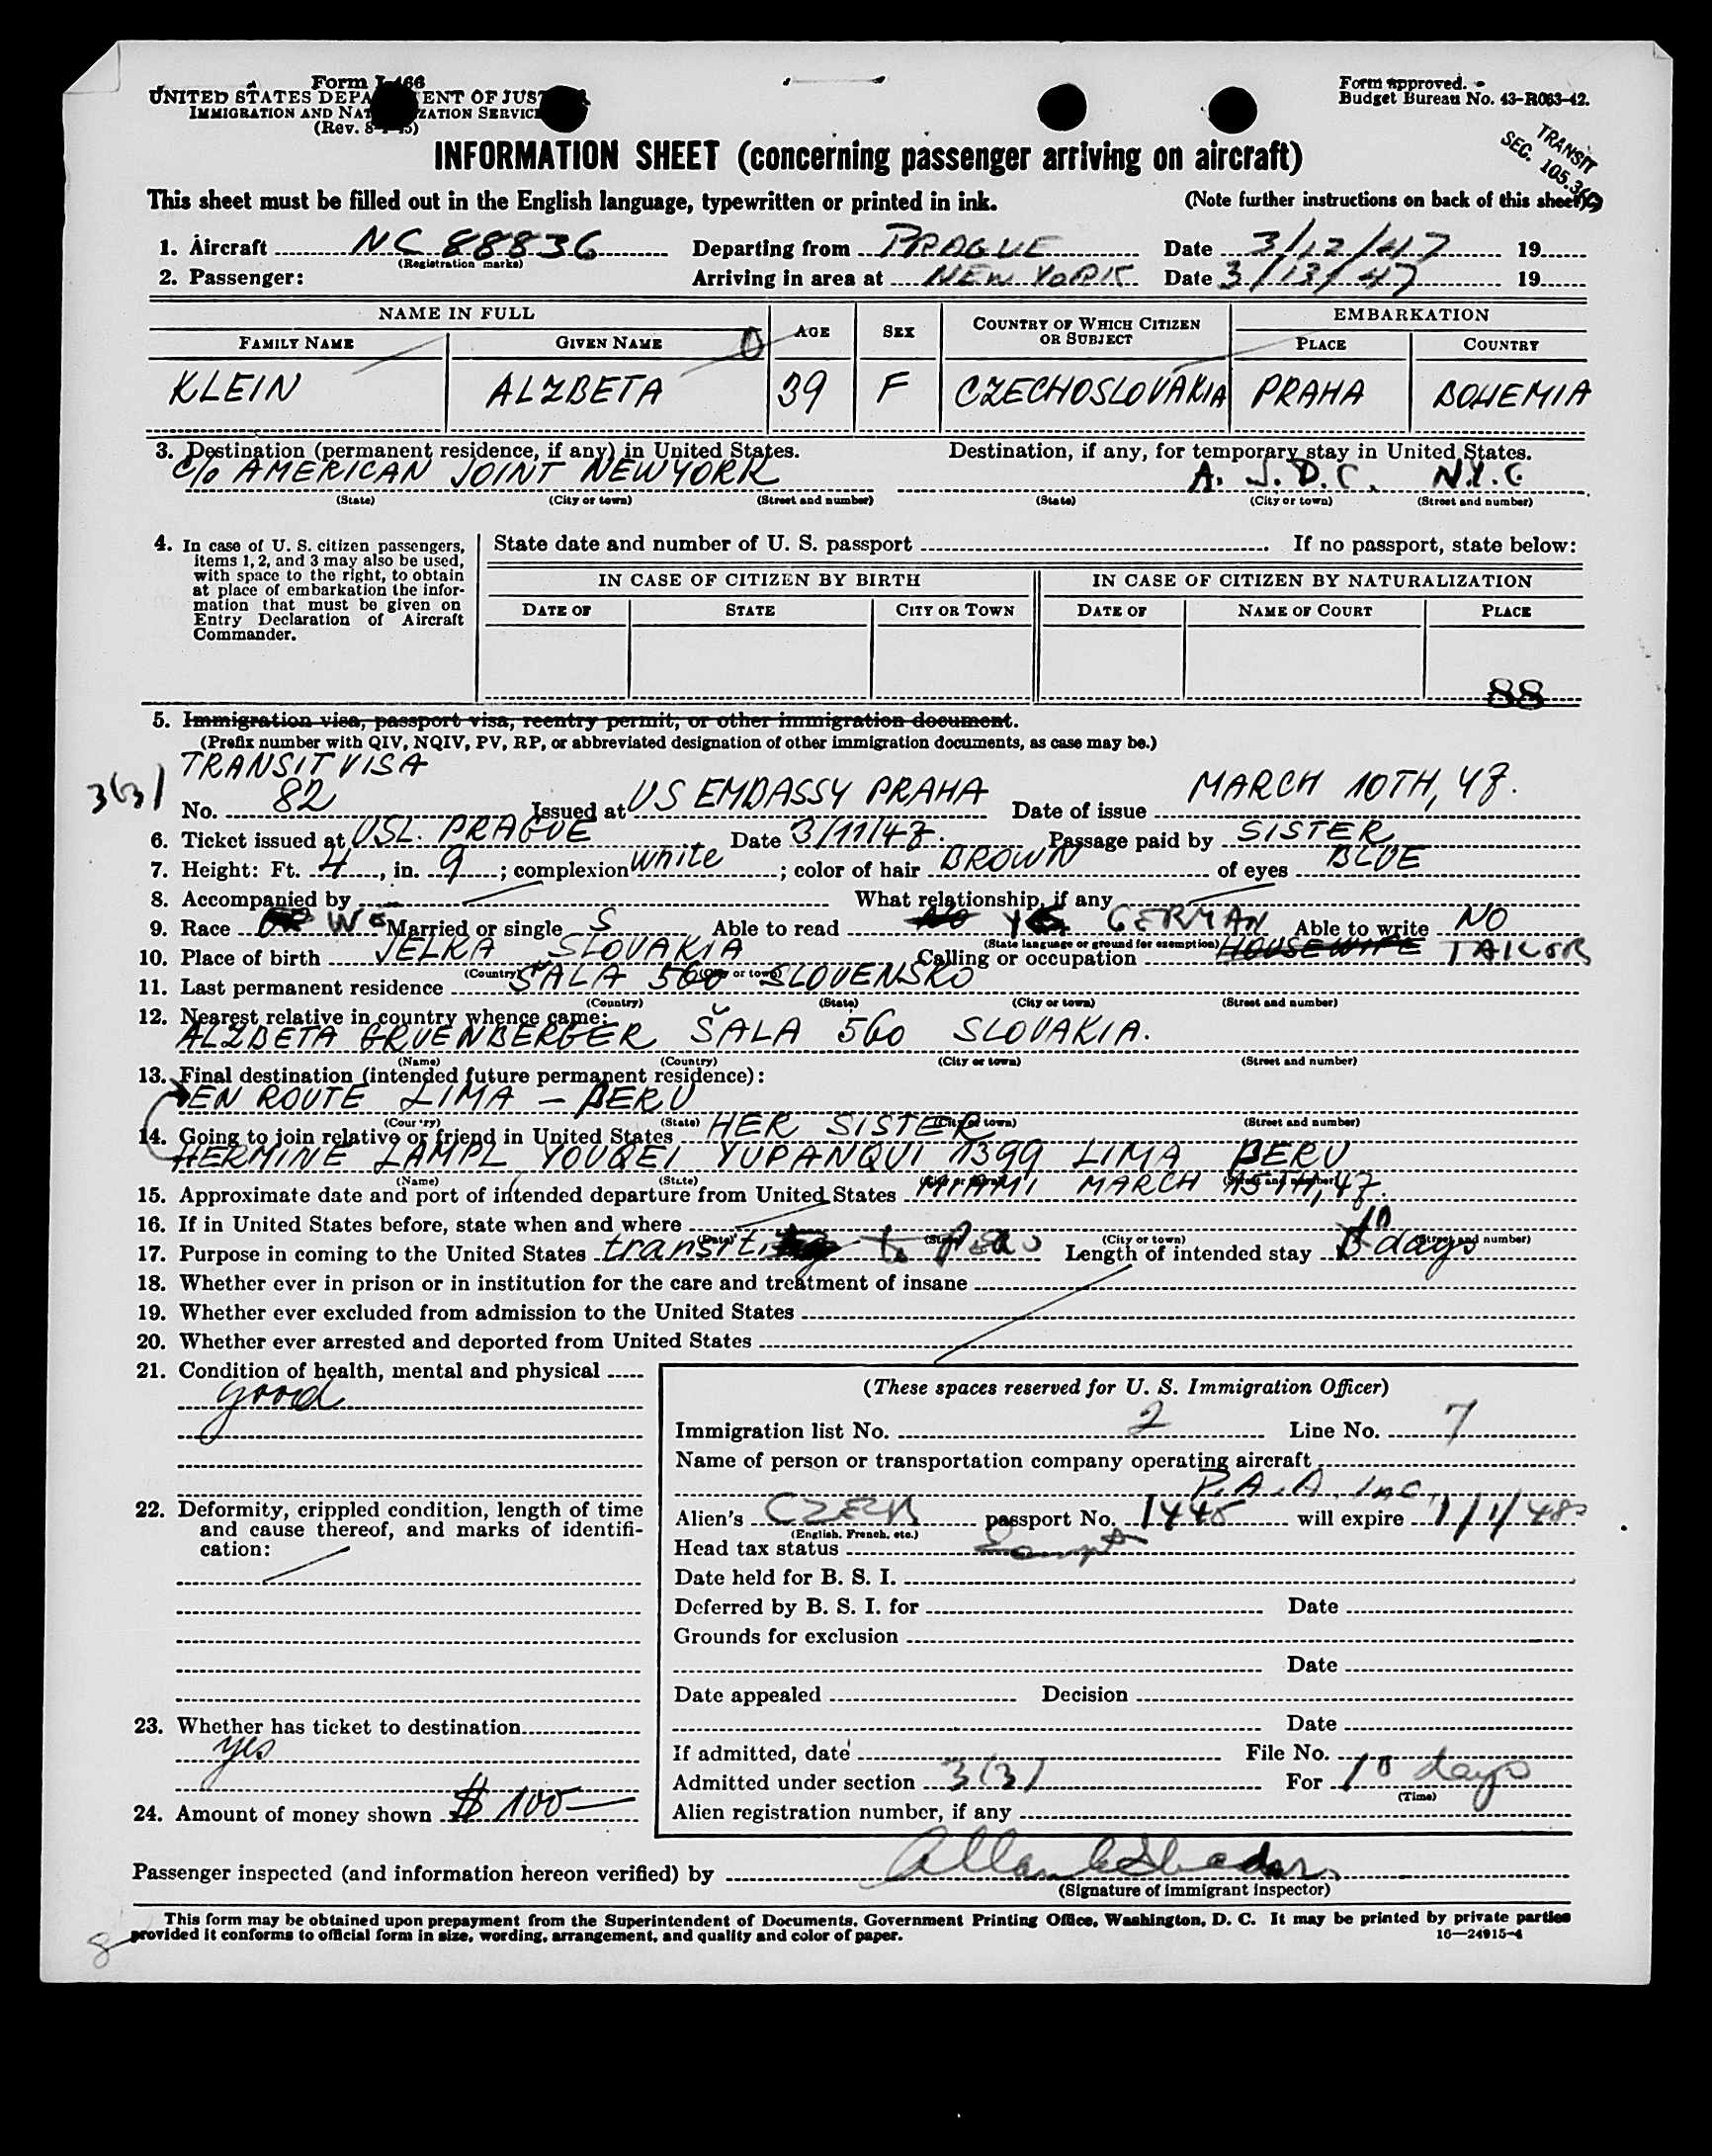 Form I-466
UNITED STATES DEPARTMENT OF JUSTICE
IMMIGRATION AND NATURALIZATION SERVICE
(Rev. 8-1-45)
Form approved.
Budget Bureau No. 43-R063-42.
TRANSIT
SEC. 105.3
INFORMATION SHEET (concerning passenger arriving on aircraft)
This sheet must be filled out in the English language, typewritten or printed in ink. (Note further instructions on back of this sheet)
1. Aircraft NC 88836 Departing from PRAGUE Date 3/12/47 19
(Registration marks)
2. Passenger: Arriving in area at NEW YORK Date 3/13/47 19
NAME IN FULL AGE SEX COUNTRY OF WHICH CITIZEN OR SUBJECT EMBARKATION
FAMILY NAME GIVEN NAME PLACE COUNTRY
KLEIN ALZBETA 39 F CZECHOSLOVAKIA PRAHA BOHEMIA
3. Destination (permanent residence, if any) in United States. Destination, if any, for temporary stay in United States.
C/o AMERICAN JOINT NEW YORK A. J. D. C. N.Y.C
(State) (City or town) (Street and number) (State) (City or town) (Street and number)
4. In case of U. S. citizen passengers, items 1, 2, and 3 may also be used, with space to the right, to obtain at place of embarkation the information that must be given on Entry Declaration of Aircraft Commander.
State date and number of U. S. passport . If no passport, state below:
IN CASE OF CITIZEN BY BIRTH IN CASE OF CITIZEN BY NATURALIZATION
DATE OF STATE CITY OR TOWN DATE OF NAME OF COURT PLACE
88
5. Immigration visa, passport visa, reentry permit, or other immigration document.
(Prefix number with QIV, NQIV, PV, RP, or abbreviated designation of other immigration documents, as case may be.)
TRANSIT VISA
3(3)
No. 82 Issued at US EMBASSY PRAHA Date of issue MARCH 10TH, 47.
6. Ticket issued at USL. PRAGUE Date 3/11/47. Passage paid by SISTER
7. Height: Ft. 4, in. 9; complexion white; color of hair BROWN of eyes BLUE
8. Accompanied by What relationship, if any
9. Race Married or single S Able to read NO YES GERMAN Able to write NO
(State language or ground for exemption)
10. Place of birth JELKA SLOVAKIA Calling or occupation HOUSEWIFE TAILOR
(Country) (City or town)
11. Last permanent residence ŠALA 560 SLOVENSKO
(Country) (State) (City or town) (Street and number)
12. Nearest relative in country whence came:
ALZBETA GRUENBERGER ŠALA 560 SLOVAKIA.
(Name) (Country) (City or town) (Street and number)
13. Final destination (intended future permanent residence):
EN ROUTE LIMA - PERU
(Country) (State) (City or town) (Street and number)
14. Going to join relative or friend in United States HER SISTER
HERMINE LAMPL YOUQEI YUPANQUI 1399 LIMA PERU
(Name) (State) (City or town) (Street and number)
15. Approximate date and port of intended departure from United States MIAMI MARCH 15TH, 47.
16. If in United States before, state when and where
(Date) (State) (City or town) (Street and number)
17. Purpose in coming to the United States transit to Peru Length of intended stay 10 days
18. Whether ever in prison or in institution for the care and treatment of insane
19. Whether ever excluded from admission to the United States
20. Whether ever arrested and deported from United States
21. Condition of health, mental and physical
good
22. Deformity, crippled condition, length of time and cause thereof, and marks of identification:
23. Whether has ticket to destination
yes
24. Amount of money shown $ 100—
(These spaces reserved for U. S. Immigration Officer)
Immigration list No. 2 Line No. 7
Name of person or transportation company operating aircraft
P. A. A. Inc.
Alien's CZECH passport No. 1445 will expire 1/1/48
(English, French, etc.)
Head tax status Exempt
Date held for B. S. I.
Deferred by B. S. I. for Date
Grounds for exclusion
Date
Date appealed Decision
Date
If admitted, date File No.
Admitted under section 3(3) For 10 days
(Time)
Alien registration number, if any
Passenger inspected (and information hereon verified) by
(Signature of immigrant inspector)
This form may be obtained upon prepayment from the Superintendent of Documents, Government Printing Office, Washington, D. C. It may be printed by private parties
provided it conforms to official form in size, wording, arrangement, and quality and color of paper. 16—24915-4
8